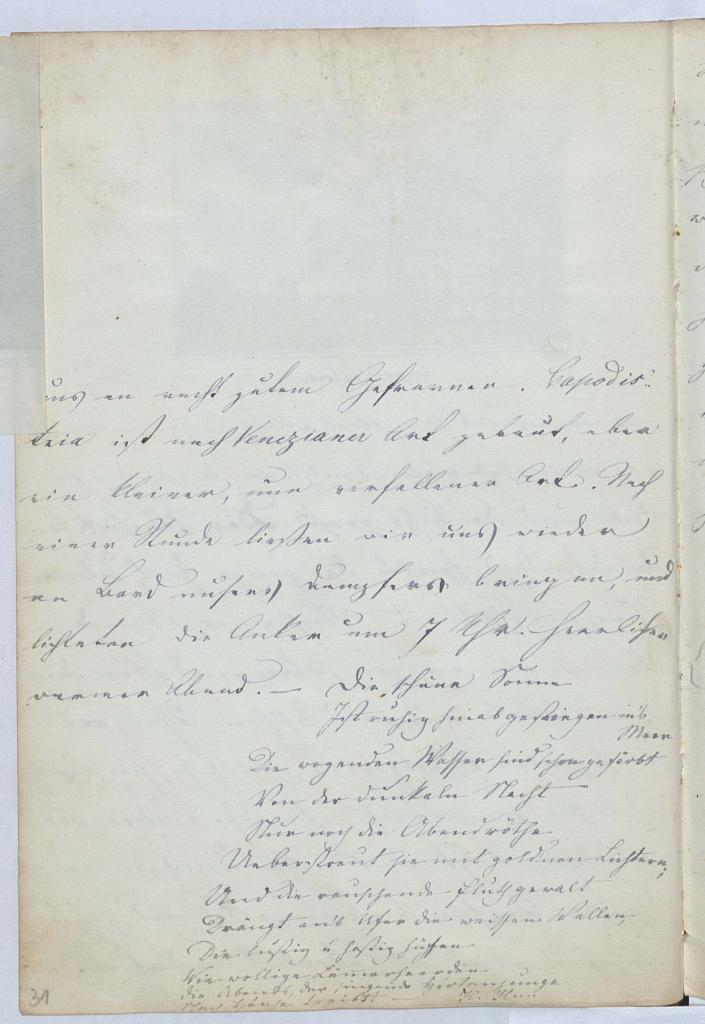 uns an recht gutem Gefrornen. Capodis-
tria ist nach Venezianer Art gebaut, eben
ein kleiner, nun verfallener Ort. Nach
einer Stunde ließen wir uns wieder
an Bord unsers Dampfers bringen, und
lichteten die Anker um 7 Uhr. Herrlicher
warmer Abend. — Die schöne Sonne
Ist ruhig hinabgestiegen in's
Meer
Die wogenden Wasser sind schon gefärbt
Von der dunkeln Nacht
Nur noch die Abendröthe
Ueberstreut sie mit goldnen Lichtern,
Und die rauschende Fluthgewalt
Drängt an's Ufer die weissen Wellen,
Die lustig u hastig hüpfen
Wie wollige Lämmerheerden
die Abends, der singende Hirtenjunge
Nach Hause treibt! — H. H....
31